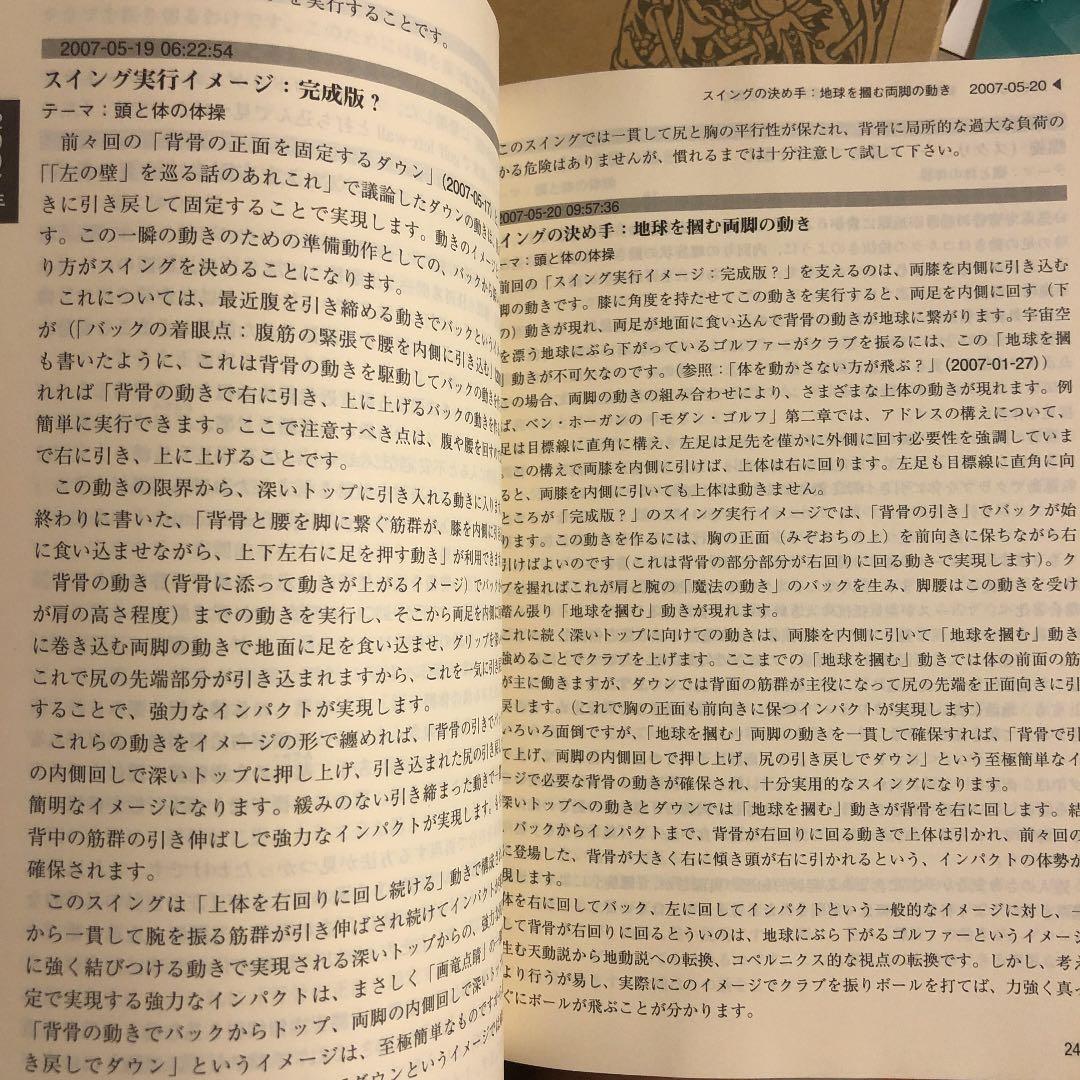 を実行することです。
2007-05-19 06:22:54
スイング実行イメージ：完成版？
テーマ：頭と体の体操
前々回の「背骨の正面を固定するダウン」（2007-05-17）
「「左の壁」を巡る話のあれこれ」で議論したダウンの動きは、
きに引き戻して固定することで実現します。動きのイメージ
す。この一瞬の動きのための準備動作としての、バックから
り方がスイングを決めることになります。
これについては、最近腹を引き締める動きでバックという
が（「バックの着眼点：腹筋の緊張で腰を内側に引き込む」
も書いたように、これは背骨の動きを駆動してバックの動きを
れれば「背骨の動きで右に引き、上に上げるバックの動きを
簡単に実行できます。ここで注意すべき点は、腹や腰を回す
で右に引き、上に上げることです。
この動きの限界から、深いトップに引き入れる動きに入りま
終わりに書いた、「背骨と腰を脚に繋ぐ筋群が、膝を内側に引き
に食い込ませながら、上下左右に足を押す動き」が利用できま
背骨の動き（背骨に添って動きが上がるイメージ）でバック
が肩の高さ程度）までの動きを実行し、そこから両足を内側に
に巻き込む両脚の動きで地面に足を食い込ませ、グリップを
これで尻の先端部分が引き込まれますから、これを一気に引き
することで、強力なインパクトが実現します。
これらの動きをイメージの形で纏めれば、「背骨の引きでバッ
の内側回しで深いトップに押し上げ、引き込まれた尻の引き戻し
簡明なイメージになります。緩みのない引き締まった動きで一
背中の筋群の引き伸ばしで強力なインパクトが実現します。
確保されます。
このスイングは「上体を右回りに回し続ける」動きで構成さ
から一貫して腕を振る筋群が引き伸ばされ続けてインパクト
に強く結びつける動きで実現される深いトップからの、強力な
定で実現する強力なインパクトは、まさしく「画竜点睛」の一
「背骨の動きでバックからトップ、両脚の内側回しで深いトッ
き戻しでダウン」というイメージは、至極簡単なものですが
ダウンというイメージでは
スイングの決め手：地球を掴む両脚の動き　2007-05-20 ◀
このスイングでは一貫して尻と胸の平行性が保たれ、背骨に局所的な過大な負荷の
かる危険はありませんが、慣れるまでは十分注意して試して下さい。
2007-05-20 09:57:36
イングの決め手：地球を掴む両脚の動き
ーマ：頭と体の体操
前回の「スイング実行イメージ：完成版？」を支えるのは、両膝を内側に引き込む
脚の動きです。膝に角度を持たせてこの動きを実行すると、両足を内側に回す（下
の）動きが現れ、両足が地面に食い込んで背骨の動きが地球に繋がります。宇宙空
を漂う地球にぶら下がっているゴルファーがクラブを振るには、この「地球を掴
」動きが不可欠なのです。（参照：「体を動かさない方が飛ぶ？」（2007-01-27））
この場合、両脚の動きの組み合わせにより、さまざまな上体の動きが現れます。例
ば、ベン・ホーガンの「モダン・ゴルフ」第二章では、アドレスの構えについて、
足は目標線に直角に構え、左足は足先を僅かに外側に回す必要性を強調していま
。この構えで両膝を内側に引けば、上体は右に回ります。左足も目標線に直角に向
ると、両膝を内側に引いても上体は動きません。
ところが「完成版？」のスイング実行イメージでは、「背骨の引き」でバックが始
ります。この動きを作るには、胸の正面（みぞおちの上）を前向きに保ちながら右
引けばよいのです（これは背骨の部分部分が右回りに回る動きで実現します）。ク
ブを握ればこれが肩と腕の「魔法の動き」のバックを生み、脚腰はこの動きを受け
踏ん張り「地球を掴む」動きが現れます。
これに続く深いトップに向けての動きは、両膝を内側に引いて「地球を掴む」動き
強めることでクラブを上げます。ここまでの「地球を掴む」動きでは体の前面の筋
が主に働きますが、ダウンでは背面の筋群が主役になって尻の先端を正面向きに引
戻します。（これで胸の正面も前向きに保つインパクトが実現します）
いろいろ面倒ですが、「地球を掴む」両脚の動きを一貫して確保すれば、「背骨で引
て上げ、両脚の内側回しで押し上げ、尻の引き戻しでダウン」という至極簡単なイ
ージで必要な背骨の動きが確保され、十分実用的なスイングになります。
深いトップへの動きとダウンでは「地球を掴む」動きが背骨を右に回します。結
、バックからインパクトまで、背骨が右回りに回る動きで上体は引かれ、前々回の
に登場した、背骨が大きく右に傾き頭が右に引かれるという、インパクトの体勢が
現します。
体を右に回してバック、左に回してインパクトという一般的なイメージに対し、一
して背骨が右回りに回るとういのは、地球にぶら下がるゴルファーというイメージ
生む天動説から地動説への転換、コペルニクス的な視点の転換です。しかし、考え
より行うが易し、実際にこのイメージでクラブを振りボールを打てば、力強く真っ
ぐにボールが飛ぶことが分かります。
24